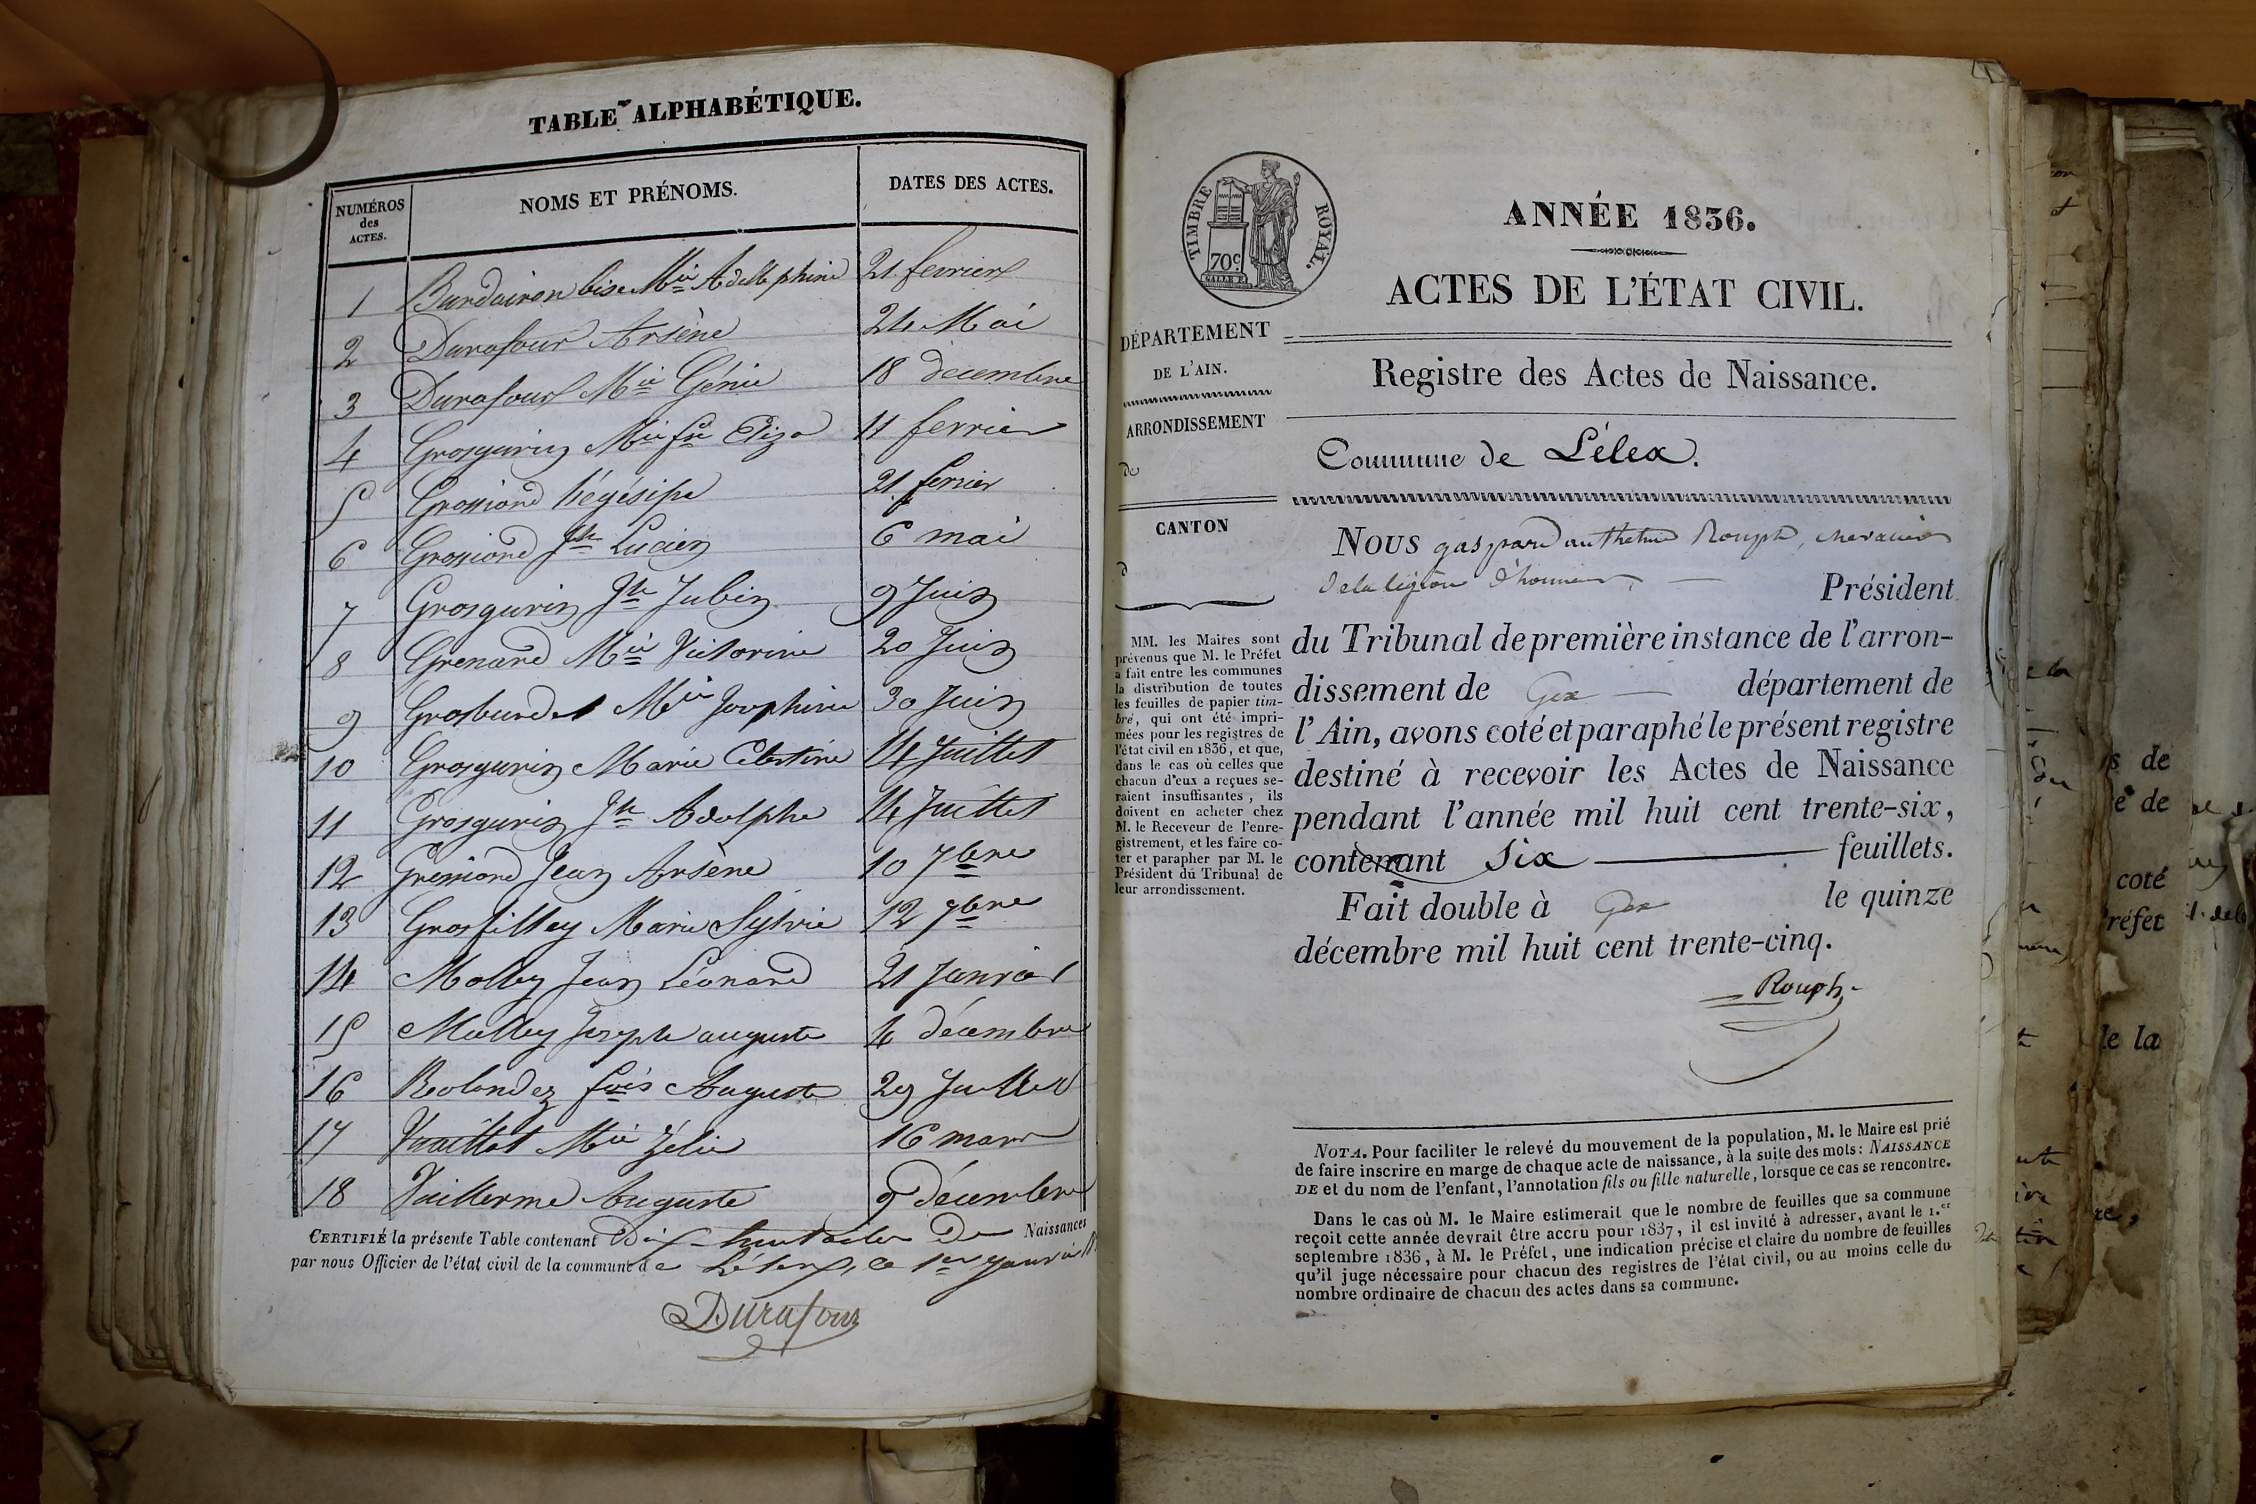 TABLE ALPHABÉTIQUE.
NUMÉROS
des
ACTES.
NOMS ET PRÉNOMS.
DATES DES ACTES.
1 Mie 21 fevrier
2 Durafour Arsène 24 Mai
3 Durafour Mie Génie 18 décembre
4 Grosgurin Mie fse Eliza 11 fevrier
5 Grossiord hégésipe 21 fevrier
6 Grossiord Jh Lucien 6 mai
7 Grosgurin Jh Jubin 9 Juin
8 Grenard Mie Victorine 20 Juin
9 Mie Josephine 30 Juin
10 Grosgurin Marie Célestine 14 Juillet
11 Grosgurin Jh Adolphe 14 Juillet
12 Jean Arsène 10 7bre
13 Grosfilley Marie Sylvie 12 9bre
14 Molley Jean Léonard 21 Janvier
15 Molley Joseph auguste 4 décembre
16 Rolandez fois Auguste 29 Juillet
17 Mie Zélie 16 mars
18 Vuillerme Auguste 9 décembre
CERTIFIÉ la présente Table contenant Dix huit actes De Naissances
par nous Officier de l'état civil de la commune de Lélex, ce 1er Janvier
Durafour
TIMBRE ROYAL.
70c
ANNÉE 1836.
ACTES DE L'ÉTAT CIVIL.
DÉPARTEMENT
DE L'AIN.
ARRONDISSEMENT
de
CANTON
d
MM. les Maires sont
prévenus que M. le Préfet
a fait entre les communes
la distribution de toutes
les feuilles de papier tim-
bré, qui ont été impri-
mées pour les registres de
l'état civil en 1836, et que,
dans le cas où celles que
chacun d'eux a reçues se-
raient insuffisantes, ils
doivent en acheter chez
M. le Receveur de l'enre-
gistrement, et les faire co-
ter et parapher par M. le
Président du Tribunal de
leur arrondissement.
Registre des Actes de Naissance.
Commune de Lélex.
NOUS gaspard anthelme Rouph, chevalier
de la légion d'honneur, Président
du Tribunal de première instance de l'arron-
dissement de Gex département de
l'Ain, avons coté et paraphé le présent registre
destiné à recevoir les Actes de Naissance
pendant l'année mil huit cent trente-six,
contenant six feuillets.
Fait double à Gex le quinze
décembre mil huit cent trente-cinq.
Rouph
NOTA. Pour faciliter le relevé du mouvement de la population, M. le Maire est prié
de faire inscrire en marge de chaque acte de naissance, à la suite des mots: NAISSANCE
DE et du nom de l'enfant, l'annotation fils ou fille naturelle, lorsque ce cas se rencontre.
Dans le cas où M. le Maire estimerait que le nombre de feuilles que sa commune
reçoit cette année devrait être accru pour 1837, il est invité à adresser, avant le 1.er
septembre 1836, à M. le Préfet, une indication précise et claire du nombre de feuilles
qu'il juge nécessaire pour chacun des registres de l'état civil, ou au moins celle du
nombre ordinaire de chacun des actes dans sa commune.
de
de
coté
réfet
de la